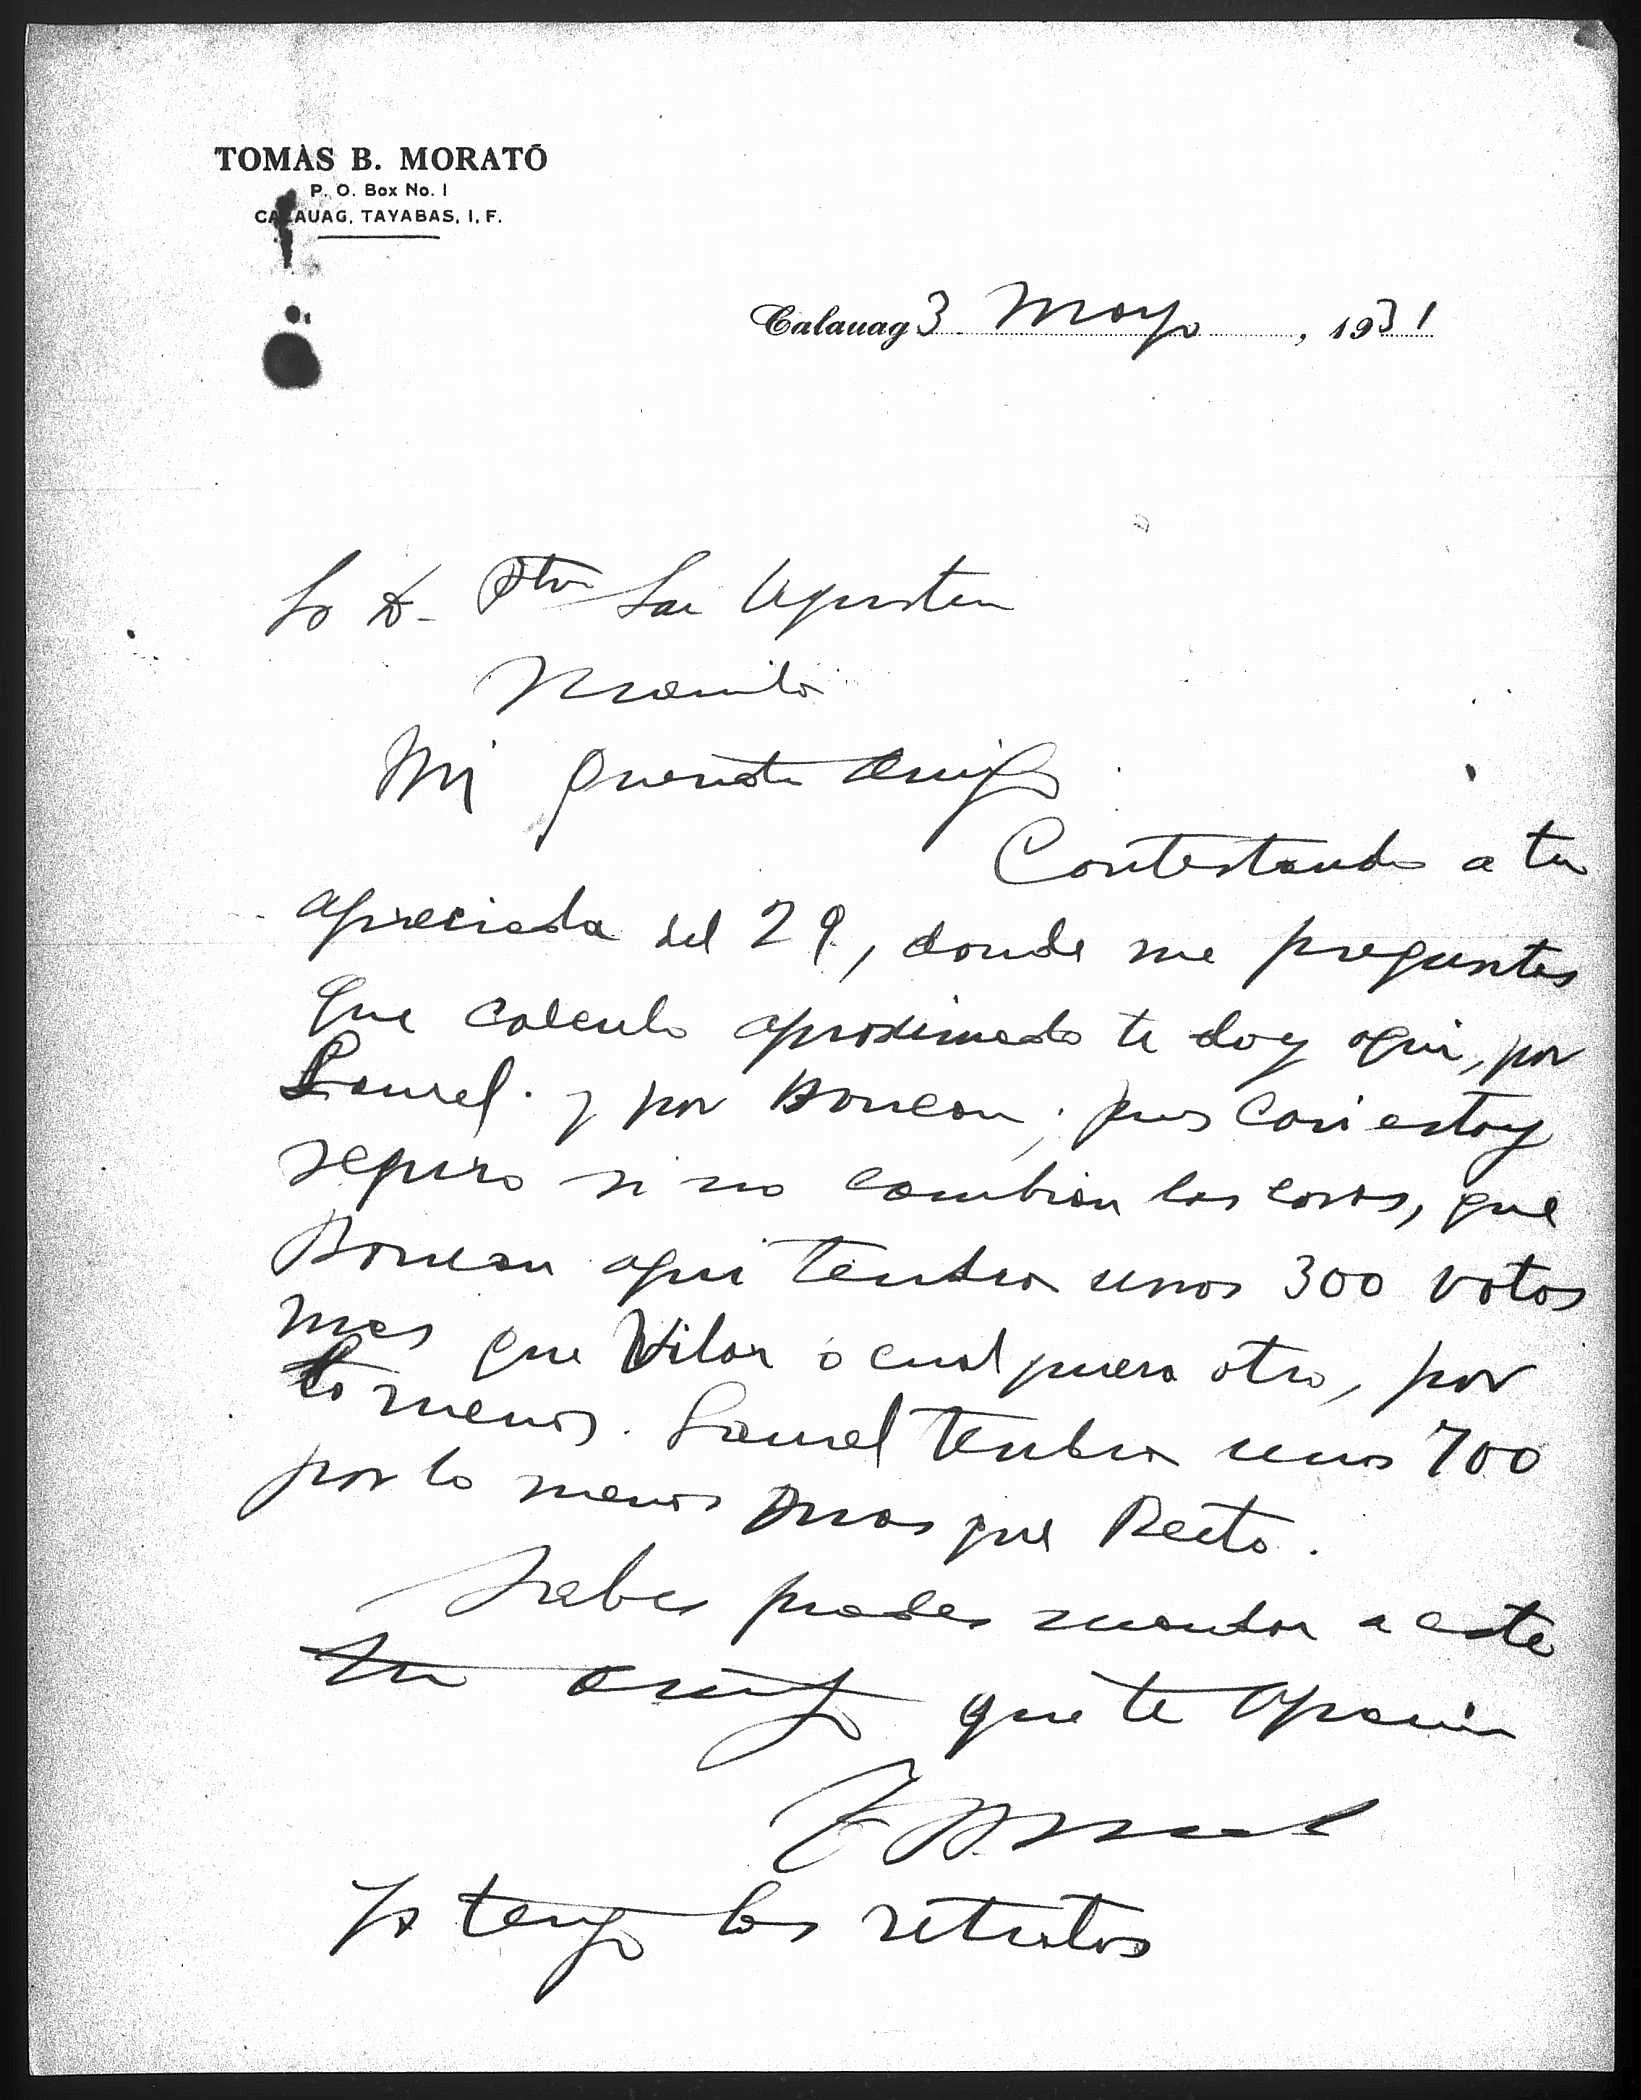 TOMÁS B. MORATÓ
P. O. Box No. 1
CALAUAG, TAYABAS, I. F.
Calauag 3 Mayo, 1931
Sr D. Pto San Agustin
Manila
Mi querido amigo
Contestando a tu
apreciada del 29, donde me preguntas
que calculo aproximado te doy aqui, por
Laurel y por Boncan; pues casi estoy
seguro si no cambian las cosas, que
Boncan aqui tendra unos 300 votos
mas que Vilar o cualquiera otro, por
lo menos. Laurel tendra unos 700
por lo menos mas que Recto.
Sabes puedes mandar a este
tu amigo que te aprecia
Ya tengo los retratos